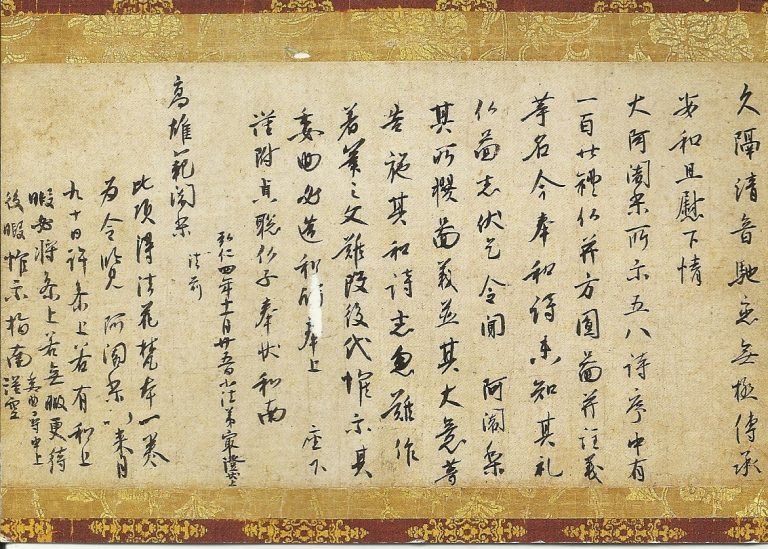 久隔清音馳恋無極傳承
安和且慰下情
大阿闍梨所示五八詩序中有
一百廿礼仏并方圓圖并註義
等名今奉和詩未知其礼
仏圖志伏乞令聞 阿闍梨
其所撰圖義並其大意等
告施其和詩者忽難作
著筆之文難改後代惟示其
委曲必造和詩奉上 座下
謹附貞聡仏子奉状和南
弘仁四年十一月廿五日小法弟最澄状上
高雄範闍梨
法前
此頃得法花梵本一巻
為令覧阿闍梨以来月
九十日許参上若有和上
暇必将参上若無暇更待
後暇惟示指南 謹空